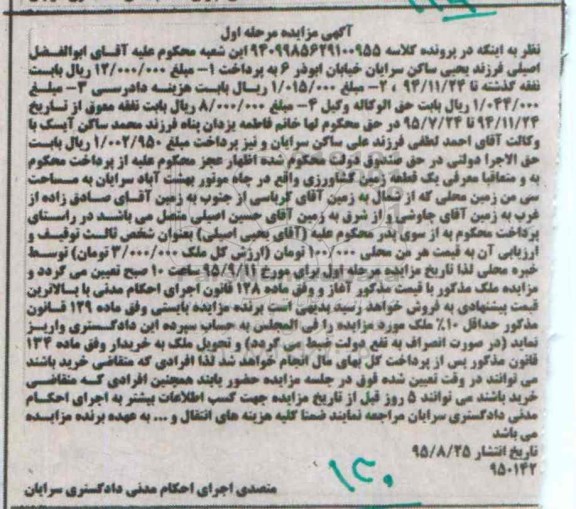 آگهی مزایده مرحله اول
نظر به اینکه در پرونده کلاسه ۹۴۰۹۹۸۵۶۲۹۱۰۰۹۵۵ این شعبه محکوم علیه آقای ابوالفضل
اصیلی فرزند یحیی ساکن سرایان خیابان ابوذر ۶ به پرداخت ۱- مبلغ ۱۲/۰۰۰/۰۰۰ ریال بابت
نفقه گذشته تا ۹۴/۱۱/۲۴ ۲۰- مبلغ ۱/۰۱۵/۰۰۰ ریال بابت هزینه دادرسی ۳- مبلغ
۱/۰۴۴/۰۰۰ ریال بابت حق الوکاله وکیل ۴- مبلغ ۸/۰۰۰/۰۰۰ ریال بابت نفقه معوق از تاریخ
۹۴/۱۱/۲۴ تا ۹۵/۷/۲۴ در حق محکوم لها خانم فاطمه یزدان پناه فرزند محمد ساکن آیسک با
وکالت آقای احمد لطفی فرزند علی ساکن سرایان و نیز پرداخت مبلغ ۱/۰۰۲/۹۵۰ ریال بابت
حق الاجرا دولتی در حق صندوق دولت محکوم شده اظهار عجز محکوم علیه از پرداخت محکوم
به و متعاقبا معرفی یک قطعه زمین کشاورزی واقع در چاه موتور بهشت آباد سرایان به مساحت
سی من زمین محلی که از شمال به زمین آقای کرباسی از جنوب به زمین آقای صادق زاده از
غرب به زمین آقای چاوشی و از شرق به زمین آقای حسین اصیلی متصل می باشد در راستای
پرداخت محکوم به از سوی پدر محکوم علیه (آقای یحیی اصیلی) بعنوان شخص ثالث توقیف و
ارزیابی آن به قیمت هر من محلی ۱۰۰/۰۰۰ تومان (ارزش کل ملک ۳/۰۰۰/۰۰۰ تومان) توسط
خبره محلی لذا تاریخ مزایده مرحله اول برای مورخ ۹۵/۹/۱۱ ساعت ۱۰ صبح تعیین می گردد و
مزایده ملک مذکور با قیمت مذکور آغاز و وفق ماده ۱۲۸ قانون اجرای احکام مدنی با بالاترین
قیمت پیشنهادی به فروش خواهد رسید بدیهی است برنده مزایده بایستی وفق ماده ۱۲۹ قانون
مذکور حداقل ۱۰٪ ملک مورد مزایده را فی المجلس به حساب سپرده این دادگستری واریز
نماید (در صورت انصراف به نفع دولت ضبط می گردد) و تحویل ملک به خریدار وفق ماده ۱۳۴
قانون مذکور پس از پرداخت کل بهای مال انجام خواهد شد لذا افرادی که متقاضی خرید باشند
می توانند در وقت تعیین شده فوق در جلسه مزایده حضور یابند همچنین افرادی که متقاضی
خرید باشند می توانند ۵ روز قبل از تاریخ مزایده جهت کسب اطلاعات بیشتر به اجرای احکام
مدنی دادگستری سرایان مراجعه نمایند ضمنا کلیه هزینه های انتقال و ... به عهده برنده مزایده
می باشد
تاریخ انتشار ۹۵/۸/۲۵
۹۵۰۱۴۲
متصدی اجرای احکام مدنی دادگستری سرایان